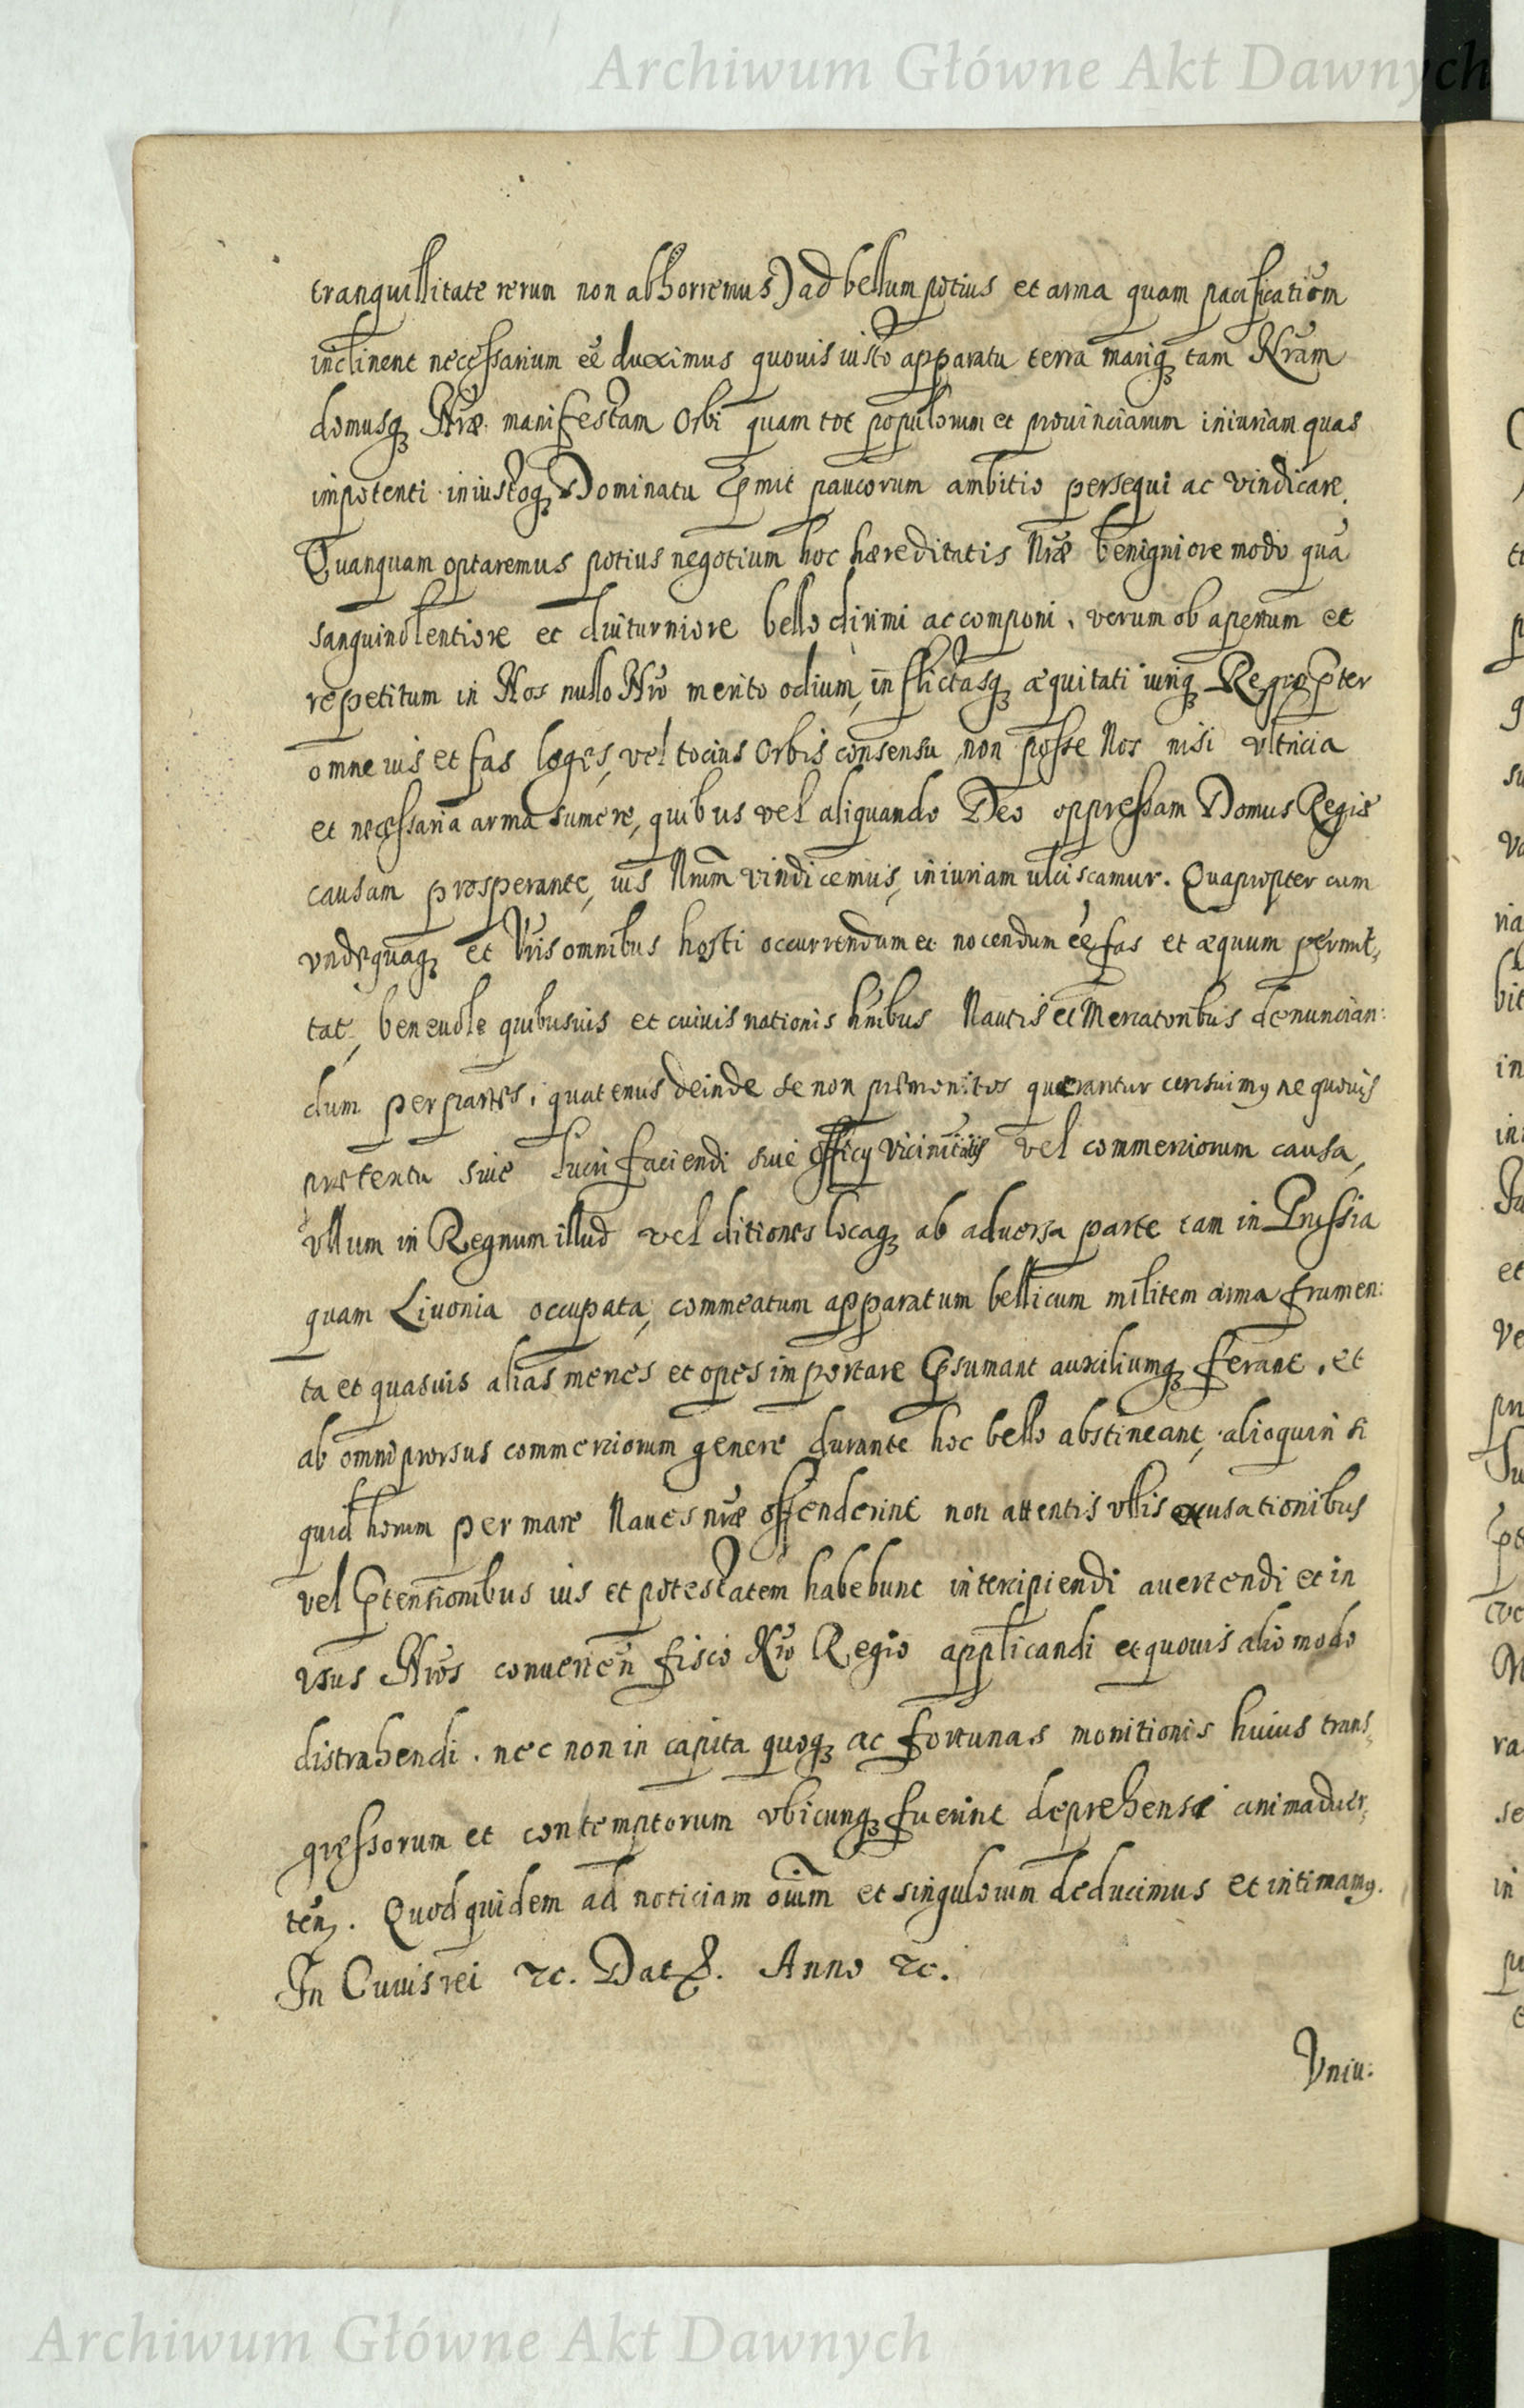 Archiwum Główne Akt Dawnych
tranquillitate rerum non abhorremus) ad bellum potius et arma quam pacificatiõem
inclinent necessarium eẽ duximus quovis iusto apparatu terra mariq3 tam Nrãm
domusq3 Nræ manifestam Orbi quam tot populorum et provinciarum iniuriam quas
impotenti iniustoq3 Dominatu p̃mit paucorum ambitio persequi ac vindicare.
Quanquam optaremus potius negotium hoc hæreditatis Nræ benigniore modo quã
sanguinolentiore et diuturniore bello dirimi ac componi, verum ob apertum et
repetitum in Nos nullo Nrõ merito odium, inflictasq3 æquitati iuriq3 Regio p̃ter
omne ius et fas leges, vel tocius Orbis consensu non posse Nos nisi ultricia
et necessaria arma sumere, quibus vel aliquando Deo oppressam Domus Regiæ
causam prosperante, ius Nrũm vindicemus, iniuriam ulciscamur. Quapropter cum
undequaq3 et Vrĩs omnibus hosti occurrendum et nocendum eẽ fas et æquum permit,
tat, benevole quibusvis et cuivis nationis hñibus Nautis et Mercatoribus denuncian:
dum per partes, quatenus deinde se non præmonitos quærantur censuimꝰ ne quovis
prætextu sive lucri faciendi sive officij vicinitatis vel commerciorum causa,
ullum in Regnum illud vel ditiones locaq3 ab adversa parte tam in Prussia
quam Livonia occupata, commeatum apparatum bellicum militem arma frumen:
ta et quasvis alias merces et opes importare p̃sumant auxiliumq3 ferant, et
ab omni prorsus commerciorum genere durante hoc bello abstineant, alioquin si
quid horum per mare Naves nræ offenderint non attentis ullis excusationibus
vel p̃tensionibus ius et potestatem habebunt intercipiendi avertendi et in
usus Nrõs convenieñ fisco Nrõ Regio applicandi et quovis alio modo
distrahendi. nec non in capita quoq3 ac fortunas monitionis huius trans,
gressorum et contemptorum ubicunq3 fuerint deprehensi animadver,
teñ. Quod quidem ad noticiam oiũm et singulorum deducimus et intimamꝰ.
In Cuius rei &c. Dat. Anno &c.
Vniu:
Archiwum Główne Akt Dawnych